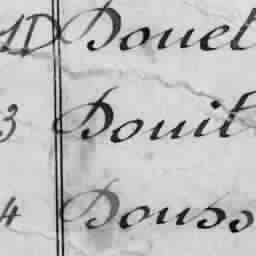 1D Douel
3 Douit
4 Douss